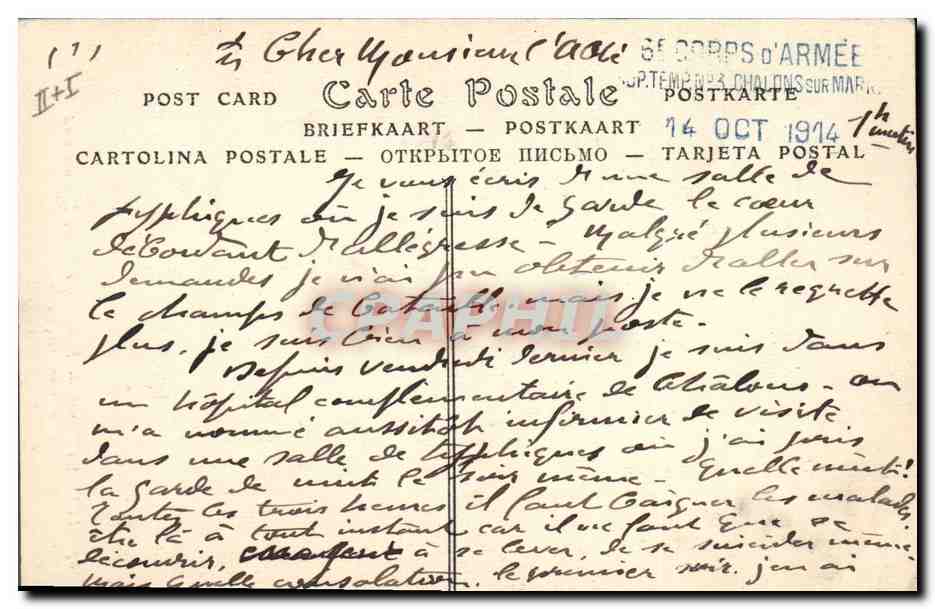 (1) Cher Monsieur l'abbé
II+I
6E CORPS D'ARMÉE
HOP.TEMP. No3. CHALONS SUR MARNE
POST CARD Carte Postale POSTKARTE
BRIEFKAART — POSTKAART 14 OCT 1914 1h matin
CARTOLINA POSTALE — ОТКРЫТОЕ ПИСЬМО — TARJETA POSTAL
Je vous écris d'une salle de
typhiques où je suis de garde le cœur
débordant d'allégresse - Malgré plusieurs
demandes je n'ai pu obtenir d'aller sur
le champs de bataille, mais je ne le regrette
plus, je suis bien à mon poste.
Depuis vendredi dernier je suis dans
un hôpital complémentaire de Châlons - on
m'a nommé aussitôt infirmier de visite
dans une salle de typhiques où j'ai pris
la garde de nuit le soir même - Quelle nuit!
Toutes les trois heures il faut baigner les malades,
être là à tout instant car il ne faut que se
découvrir, à se lever, de se suicider même
mais quelle consolation. le premier soir j'en ai
CPAPHIL